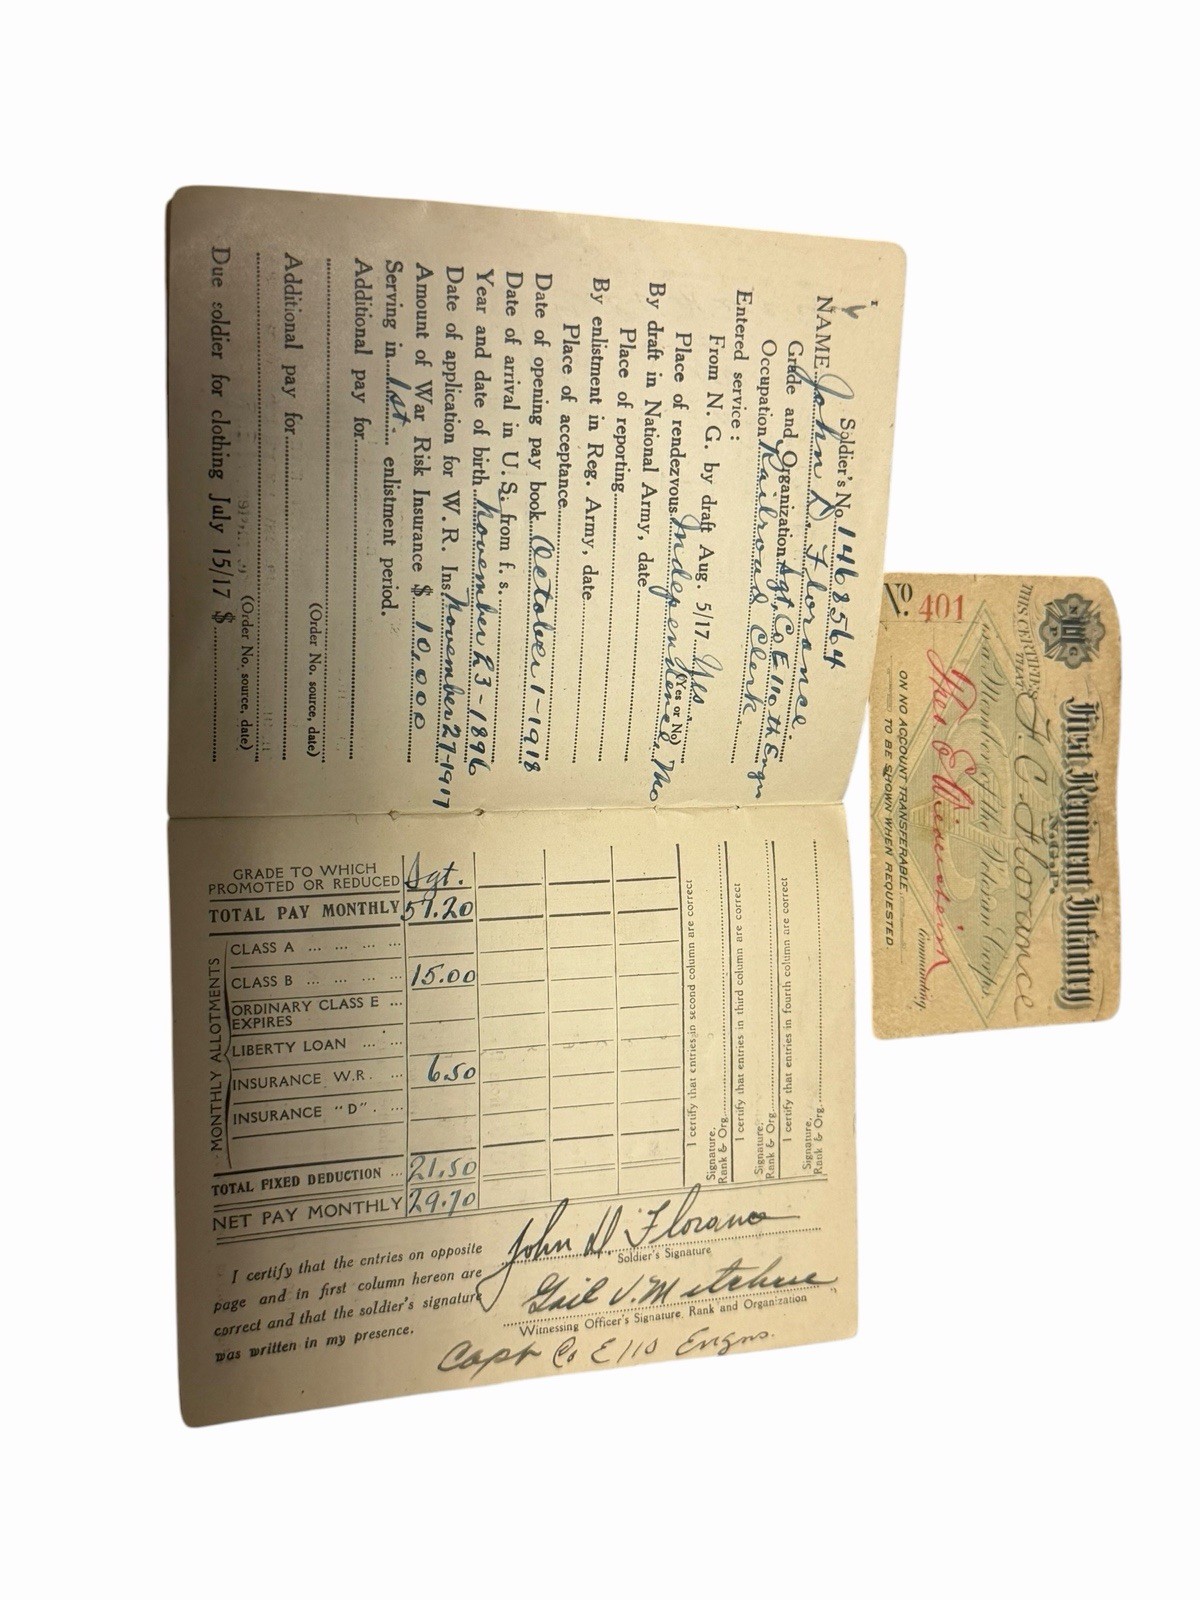 1
Soldier's No. 1468564
NAME John D. Florance.
Grade and Organization Sgt, Co E 110th Engrs
Occupation Railroad Clerk
Entered service:
From N. G. by draft Aug. 5/17 Yes.
(Yes or No)
Place of rendezvous Independence, Mo
By draft in National Army, date
Place of reporting
By enlistment in Reg. Army, date
Place of acceptance
Date of opening pay book October 1-1918
Date of arrival in U. S. from f. s.
Year and date of birth November 23-1896
Date of application for W. R. Ins November 27-1917
Amount of War Risk Insurance $ 10,000
Serving in 1st. enlistment period.
Additional pay for
(Order No. source, date)
Additional pay for
(Order No. source, date)
Due soldier for clothing July 15/17 $
GRADE TO WHICH PROMOTED OR REDUCED Sgt.
TOTAL PAY MONTHLY 51.20
MONTHLY ALLOTMENTS
CLASS A
CLASS B 15.00
ORDINARY CLASS E
EXPIRES
LIBERTY LOAN
INSURANCE W.R. 6.50
INSURANCE "D"
TOTAL FIXED DEDUCTION 21.50
NET PAY MONTHLY 29.70
I certify that entries in second column are correct
Signature.
Rank & Org.
I certify that entries in third column are correct
Signature.
Rank & Org.
I certify that entries in fourth column are correct
Signature.
Rank & Org.
I certify that the entries on opposite
page and in first column hereon are
correct and that the soldier's signature
was written in my presence.
John D. Florance
Soldier's Signature
Gail V.
Witnessing Officer's Signature, Rank and Organization
Capt Co E 110 Engrs.
First Regiment Infantry
N.G.P.
THIS CERTIFIES THAT F. C. Florance
is a Member of the Veteran Corps.
Theo E Wiedersheim
Commanding.
No. 401
ON NO ACCOUNT TRANSFERABLE
TO BE SHOWN WHEN REQUESTED.